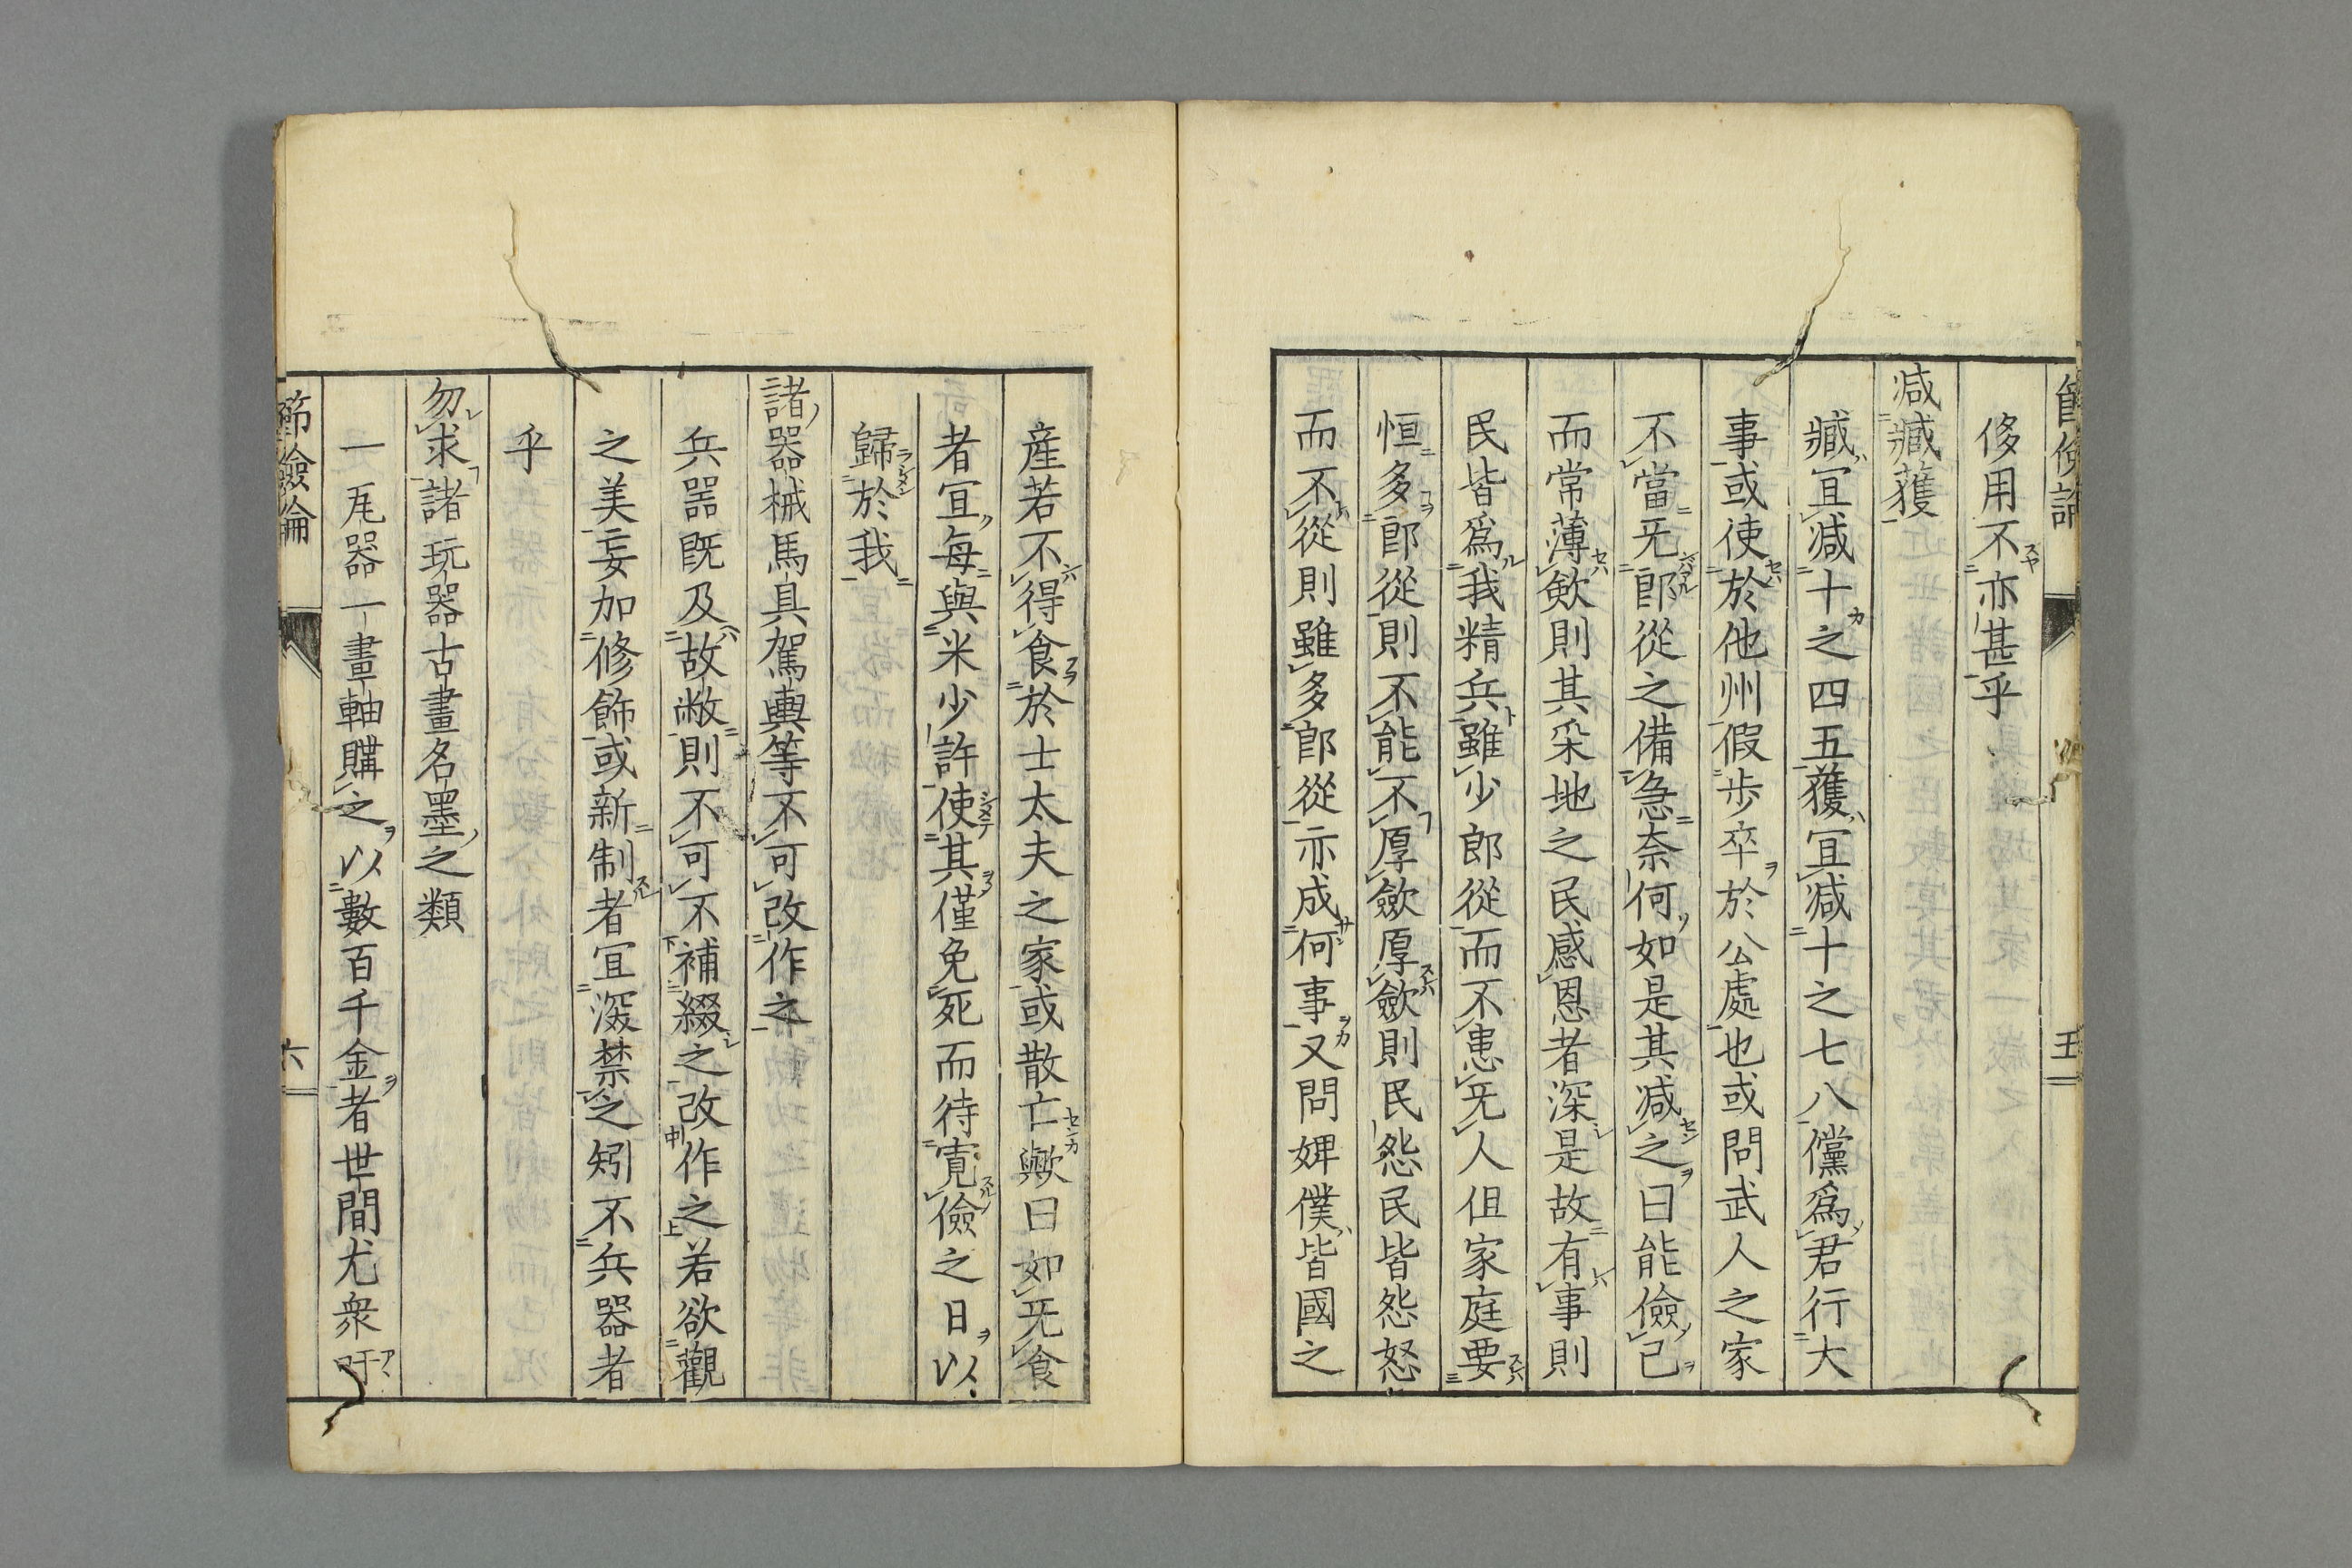 侈用不亦甚乎
減臧獲
臧宜減十之四五獲宜減十之七八儻爲君行大
事或使於他州假歩卒於公處也或問武人之家
不當无郎從之備急奈何如是其減之曰能儉己
而常薄斂則其采地之民感恩者深是故有事則
民皆爲我精兵雖少郎從而不患无人但家庭要
恒多郎從則不能不厚斂厚斂則民怨民皆怨怒
而不從則雖多郎從亦成何事又問婢僕皆國之
五
産若不得食於士太夫之家或散亡歟曰如无食
者宜每與米少許使其僅免死而待寛儉之日以
歸於我
諸器械馬具駕輿等不可改作之
兵器既及故敝則不可不補綴之改作之若欲觀
之美妄加修飾或新制者宜深禁之矧不兵器者
乎
勿求諸玩器古畫名墨之類
一瓦器一畫軸購之以數百千金者世間尤衆吁
節儉論
六